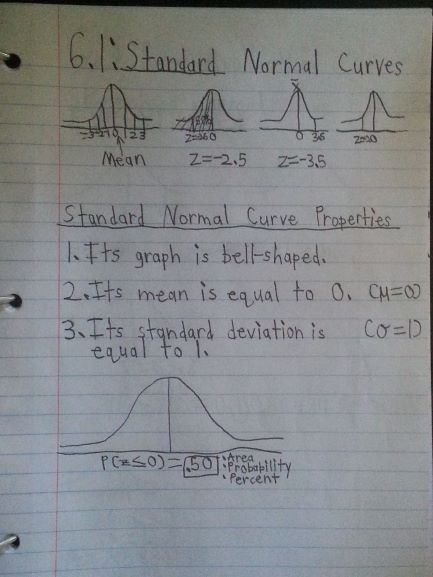 6.1: Standard Normal Curves
x̄
-3 -2 -1 0 1 2 3
0 3.5
Mean
Z=-2.5
Z=-3.5
Standard Normal Curve Properties
1. Its graph is bell-shaped.
2. Its mean is equal to 0. (M=0)
3. Its standard deviation is (σ=1)
equal to 1.
P(z≤0)=.50
• Area
• Probability
• Percent